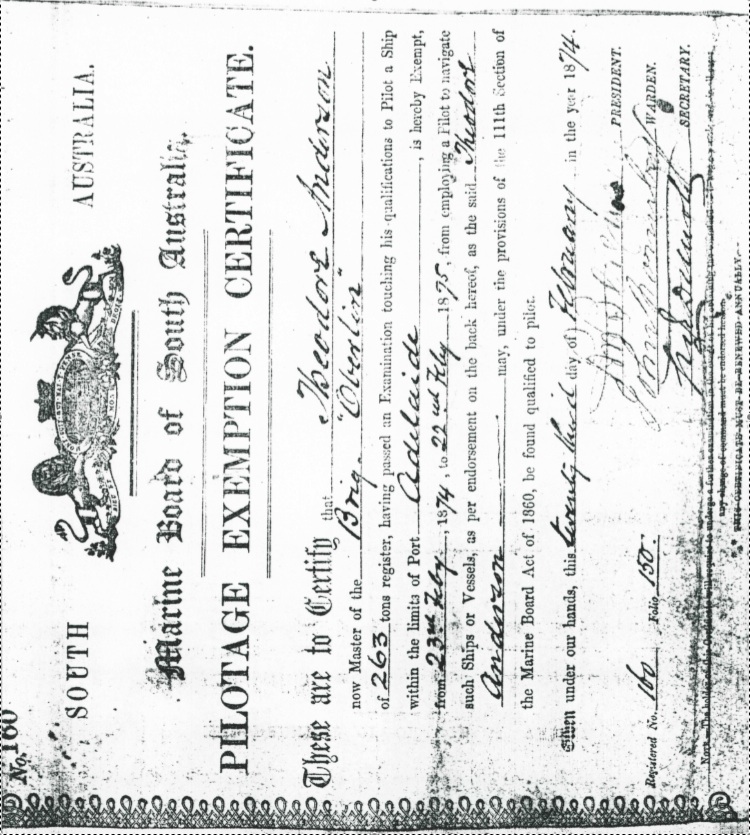 No. 160
SOUTH AUSTRALIA.
Marine Board of South Australia.
PILOTAGE EXEMPTION CERTIFICATE.
These are to Certify that Theodore Anderson
now Master of the Brig "Oberlin"
of 263 tons register, having passed an Examination touching his qualifications to Pilot a Ship
within the limits of Port Adelaide, is hereby Exempt,
from 23rd Feby 1874, to 22nd Feby 1875, from employing a Pilot to navigate
such Ships or Vessels, as per endorsement on the back hereof, as the said Theodore
Anderson may, under the provisions of the 111th Section of
the Marine Board Act of 1860, be found qualified to pilot.
Given under our hands, this twenty third day of February in the year 1874.
PRESIDENT.
WARDEN.
SECRETARY.
Registered No. 160 Folio 150.
any change of command must be endorsed hereon.
THIS CERTIFICATE MUST BE RENEWED ANNUALLY.